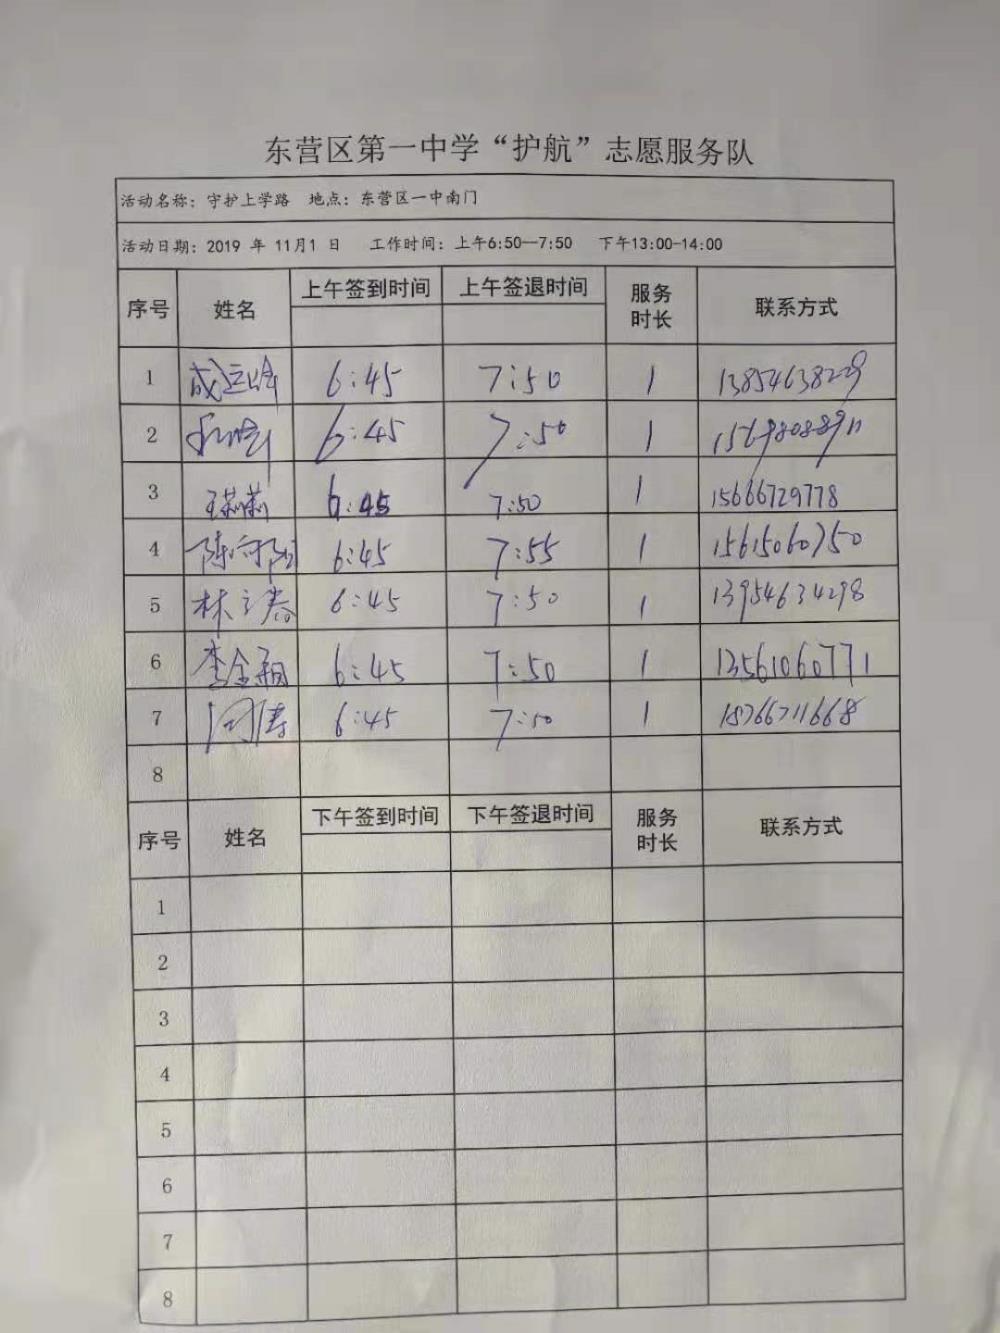 东营区第一中学“护航”志愿服务队
活动名称：守护上学路 地点：东营区一中南门
活动日期：2019 年 11月1 日 工作时间：上午6:50—7:50 下午13:00-14:00
序号 姓名 上午签到时间 上午签退时间 服务时长 联系方式
1 6:45 7:50 1 13854638229
2 6:45 7:50 1
3 王莉莉 6:45 7:50 1 15666729778
4 6:45 7:55 1 15615060750
5 林立春 6:45 7:50 1 13954634298
6 6:45 7:50 1 13561060771
7 6:45 7:50 1 18766711668
8
序号 姓名 下午签到时间 下午签退时间 服务时长 联系方式
1
2
3
4
5
6
7
8